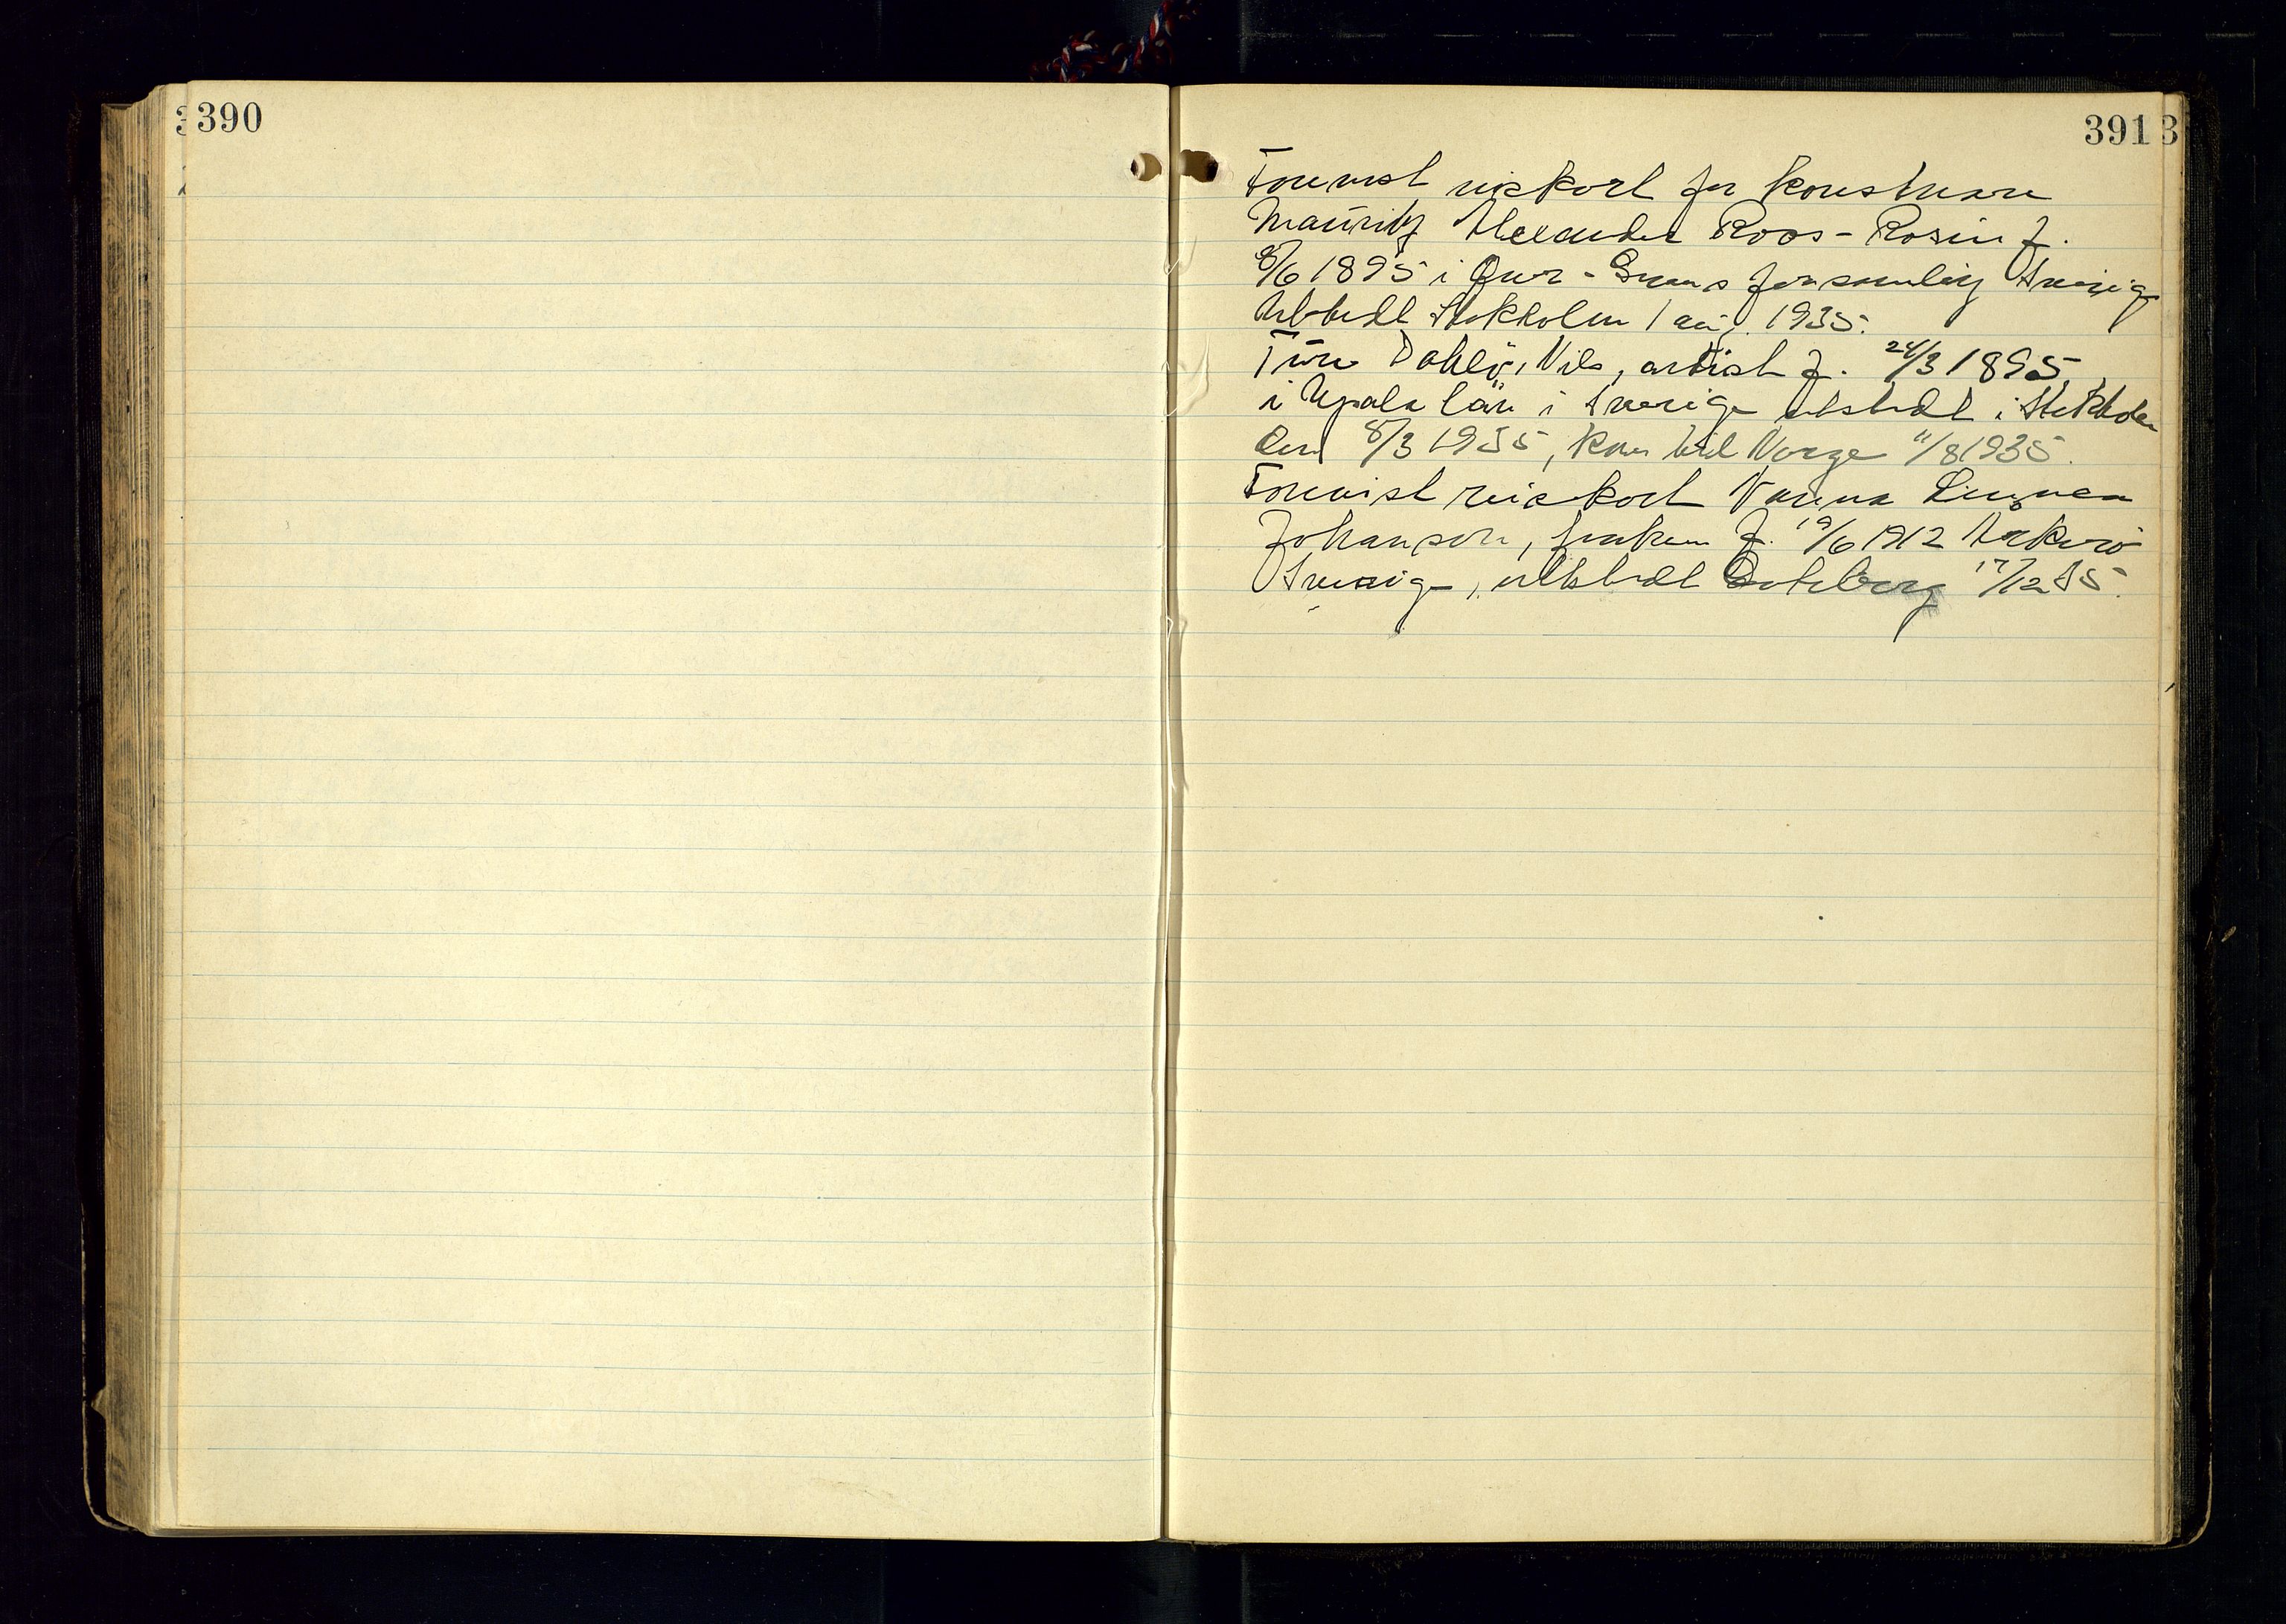 390
391
Tourist reiskort for Konstnären
Mauritz Alexander Roos-Rosin f.
8/6 1895 i forsamling Sverige
Utstedt Stokholm 1 aug. 1935.
Ture Dahlö, Nils, artist f. 24/3 1895
i Upsala län i Sverige utstedt i Stokholm
den 8/3 1935, kom til Norge 11/8 1935.
Tourist reiskort Nanna Linnea
Johanson, frøken f. 19/6 1912
Sverige, utstedt Goteberg 17/12 35.